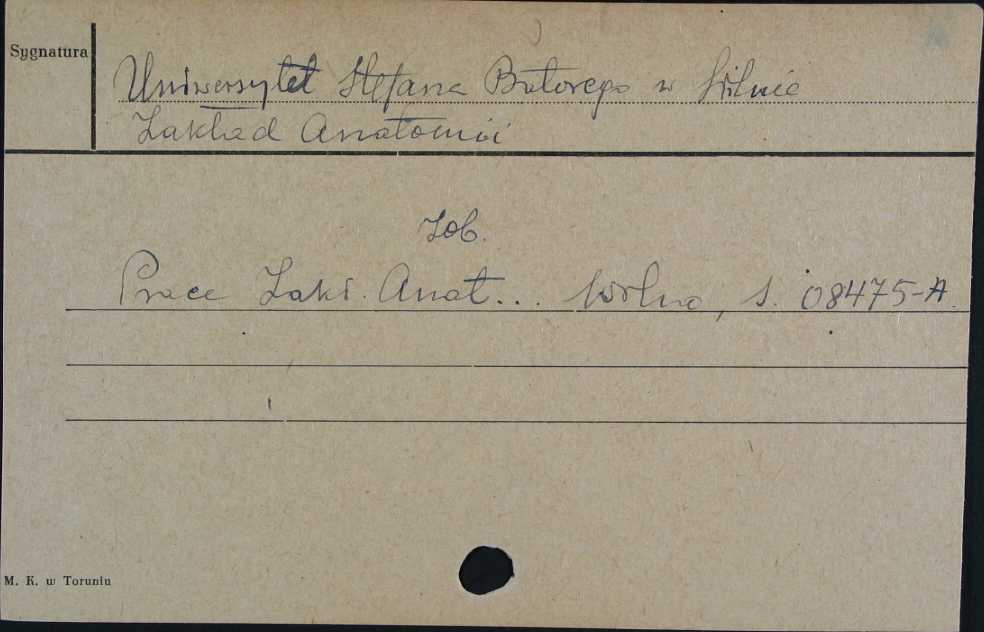 Sygnatura
Uniwersytet Stefana Batorego w Wilnie
Zakład Anatomii
Zob.
Prace Zakł. Anat... Wilno, s. 08475-A.
M. K. w Toruniu